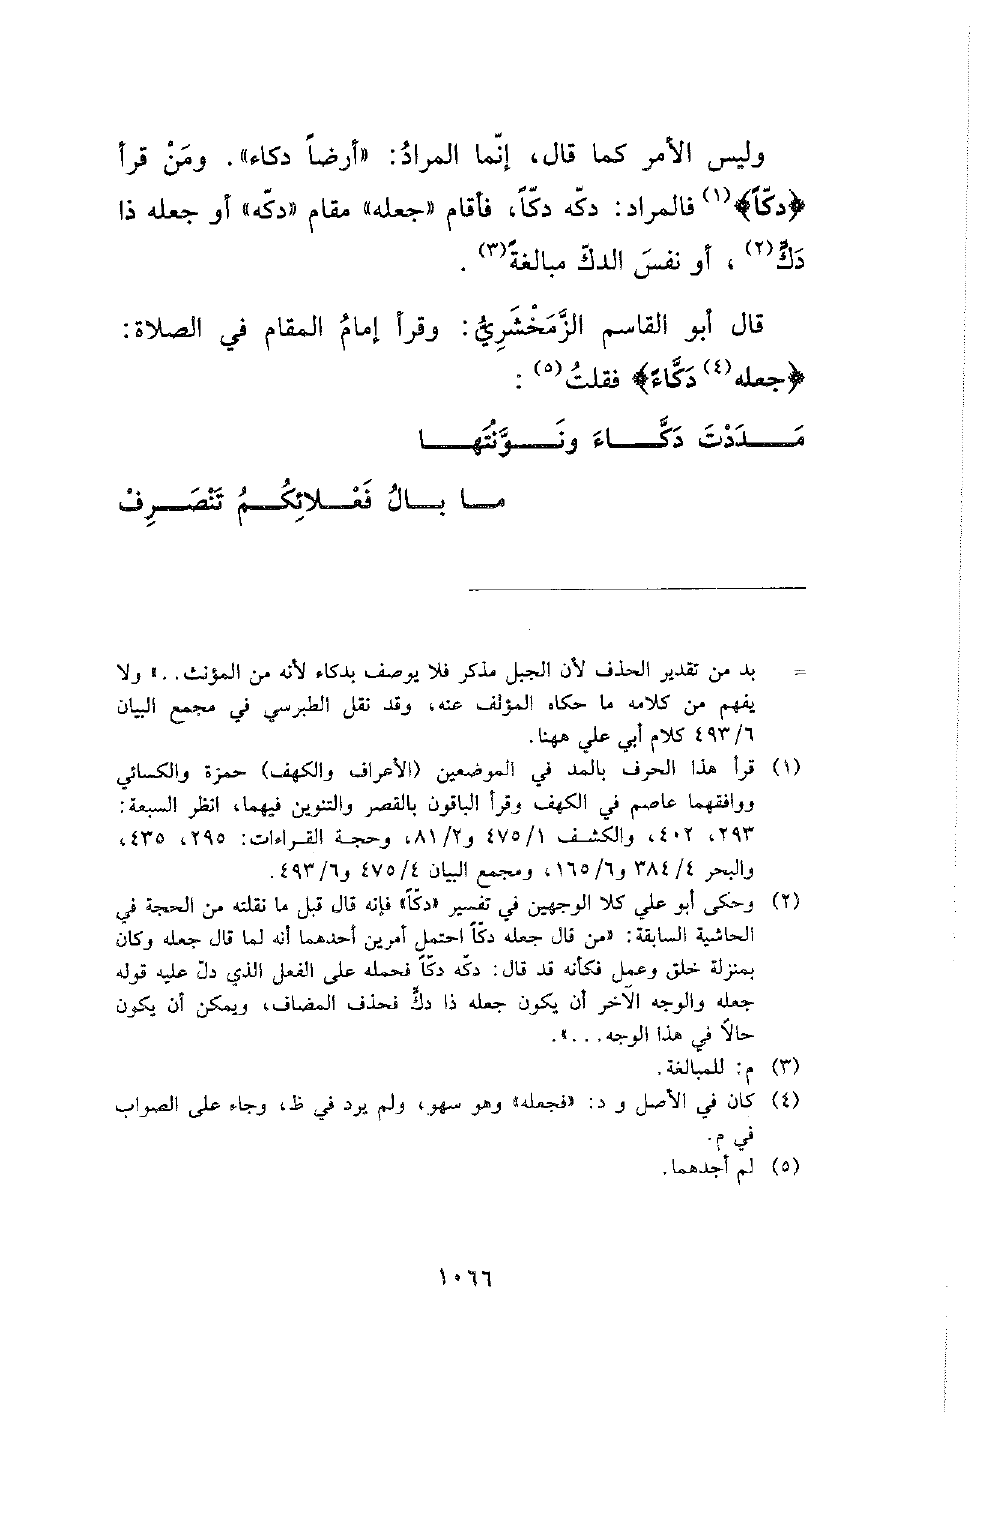 وليس الأمر كما قال، إنّما المرادُ: «أرضاً دكاء». ومَنْ قرأ
﴿دكّاً﴾(١) فالمراد: دكّه دكّاً، فأقام «جعله» مقام «دكّه» أو جعله ذا
دَكٍّ(٢)، أو نفسَ الدكّ مبالغةً(٣).
قال أبو القاسم الزَّمَخْشَرِيُّ: وقرأ إمامُ المقام في الصلاة:
﴿جعله(٤) دَكَّاءً﴾ فقلتُ(٥):
مَـدَدْتَ دَكَّـاءَ ونَـوَّنْتَهـا
مـا بـالُ فَعْـلائِكُـمُ تَنْصَـرِفْ
= بد من تقدير الحذف لأن الجبل مذكر فلا يوصف بدكاء لأنه من المؤنث..» ولا
يفهم من كلامه ما حكاه المؤلف عنه، وقد نقل الطبرسي في مجمع البيان
٤٩٣/٦ كلام أبي علي ههنا.
(١) قرأ هذا الحرف بالمد في الموضعين (الأعراف والكهف) حمزة والكسائي
ووافقهما عاصم في الكهف وقرأ الباقون بالقصر والتنوين فيهما، انظر السبعة:
٢٩٣، ٤٠٢، والكشف ٤٧٥/١ و٨١/٢، وحجة القراءات: ٢٩٥، ٤٣٥،
والبحر ٣٨٤/٤ و١٦٥/٦، ومجمع البيان ٤٧٥/٤ و٤٩٣/٦.
(٢) وحكى أبو علي كلا الوجهين في تفسير «دكّاً» فإنه قال قبل ما نقلته من الحجة في
الحاشية السابقة: «من قال جعله دكّاً احتمل أمرين أحدهما أنه لما قال جعله وكان
بمنزلة خلق وعمل فكأنه قد قال: دكّه دكّاً فحمله على الفعل الذي دلّ عليه قوله
جعله والوجه الآخر أن يكون جعله ذا دكٍّ فحذف المضاف، ويمكن أن يكون
حالاً في هذا الوجه...».
(٣) م: للمبالغة.
(٤) كان في الأصل و د: «فجعله» وهو سهو، ولم يرد في ظ، وجاء على الصواب
في م.
(٥) لم أجدهما.
١٠٦٦